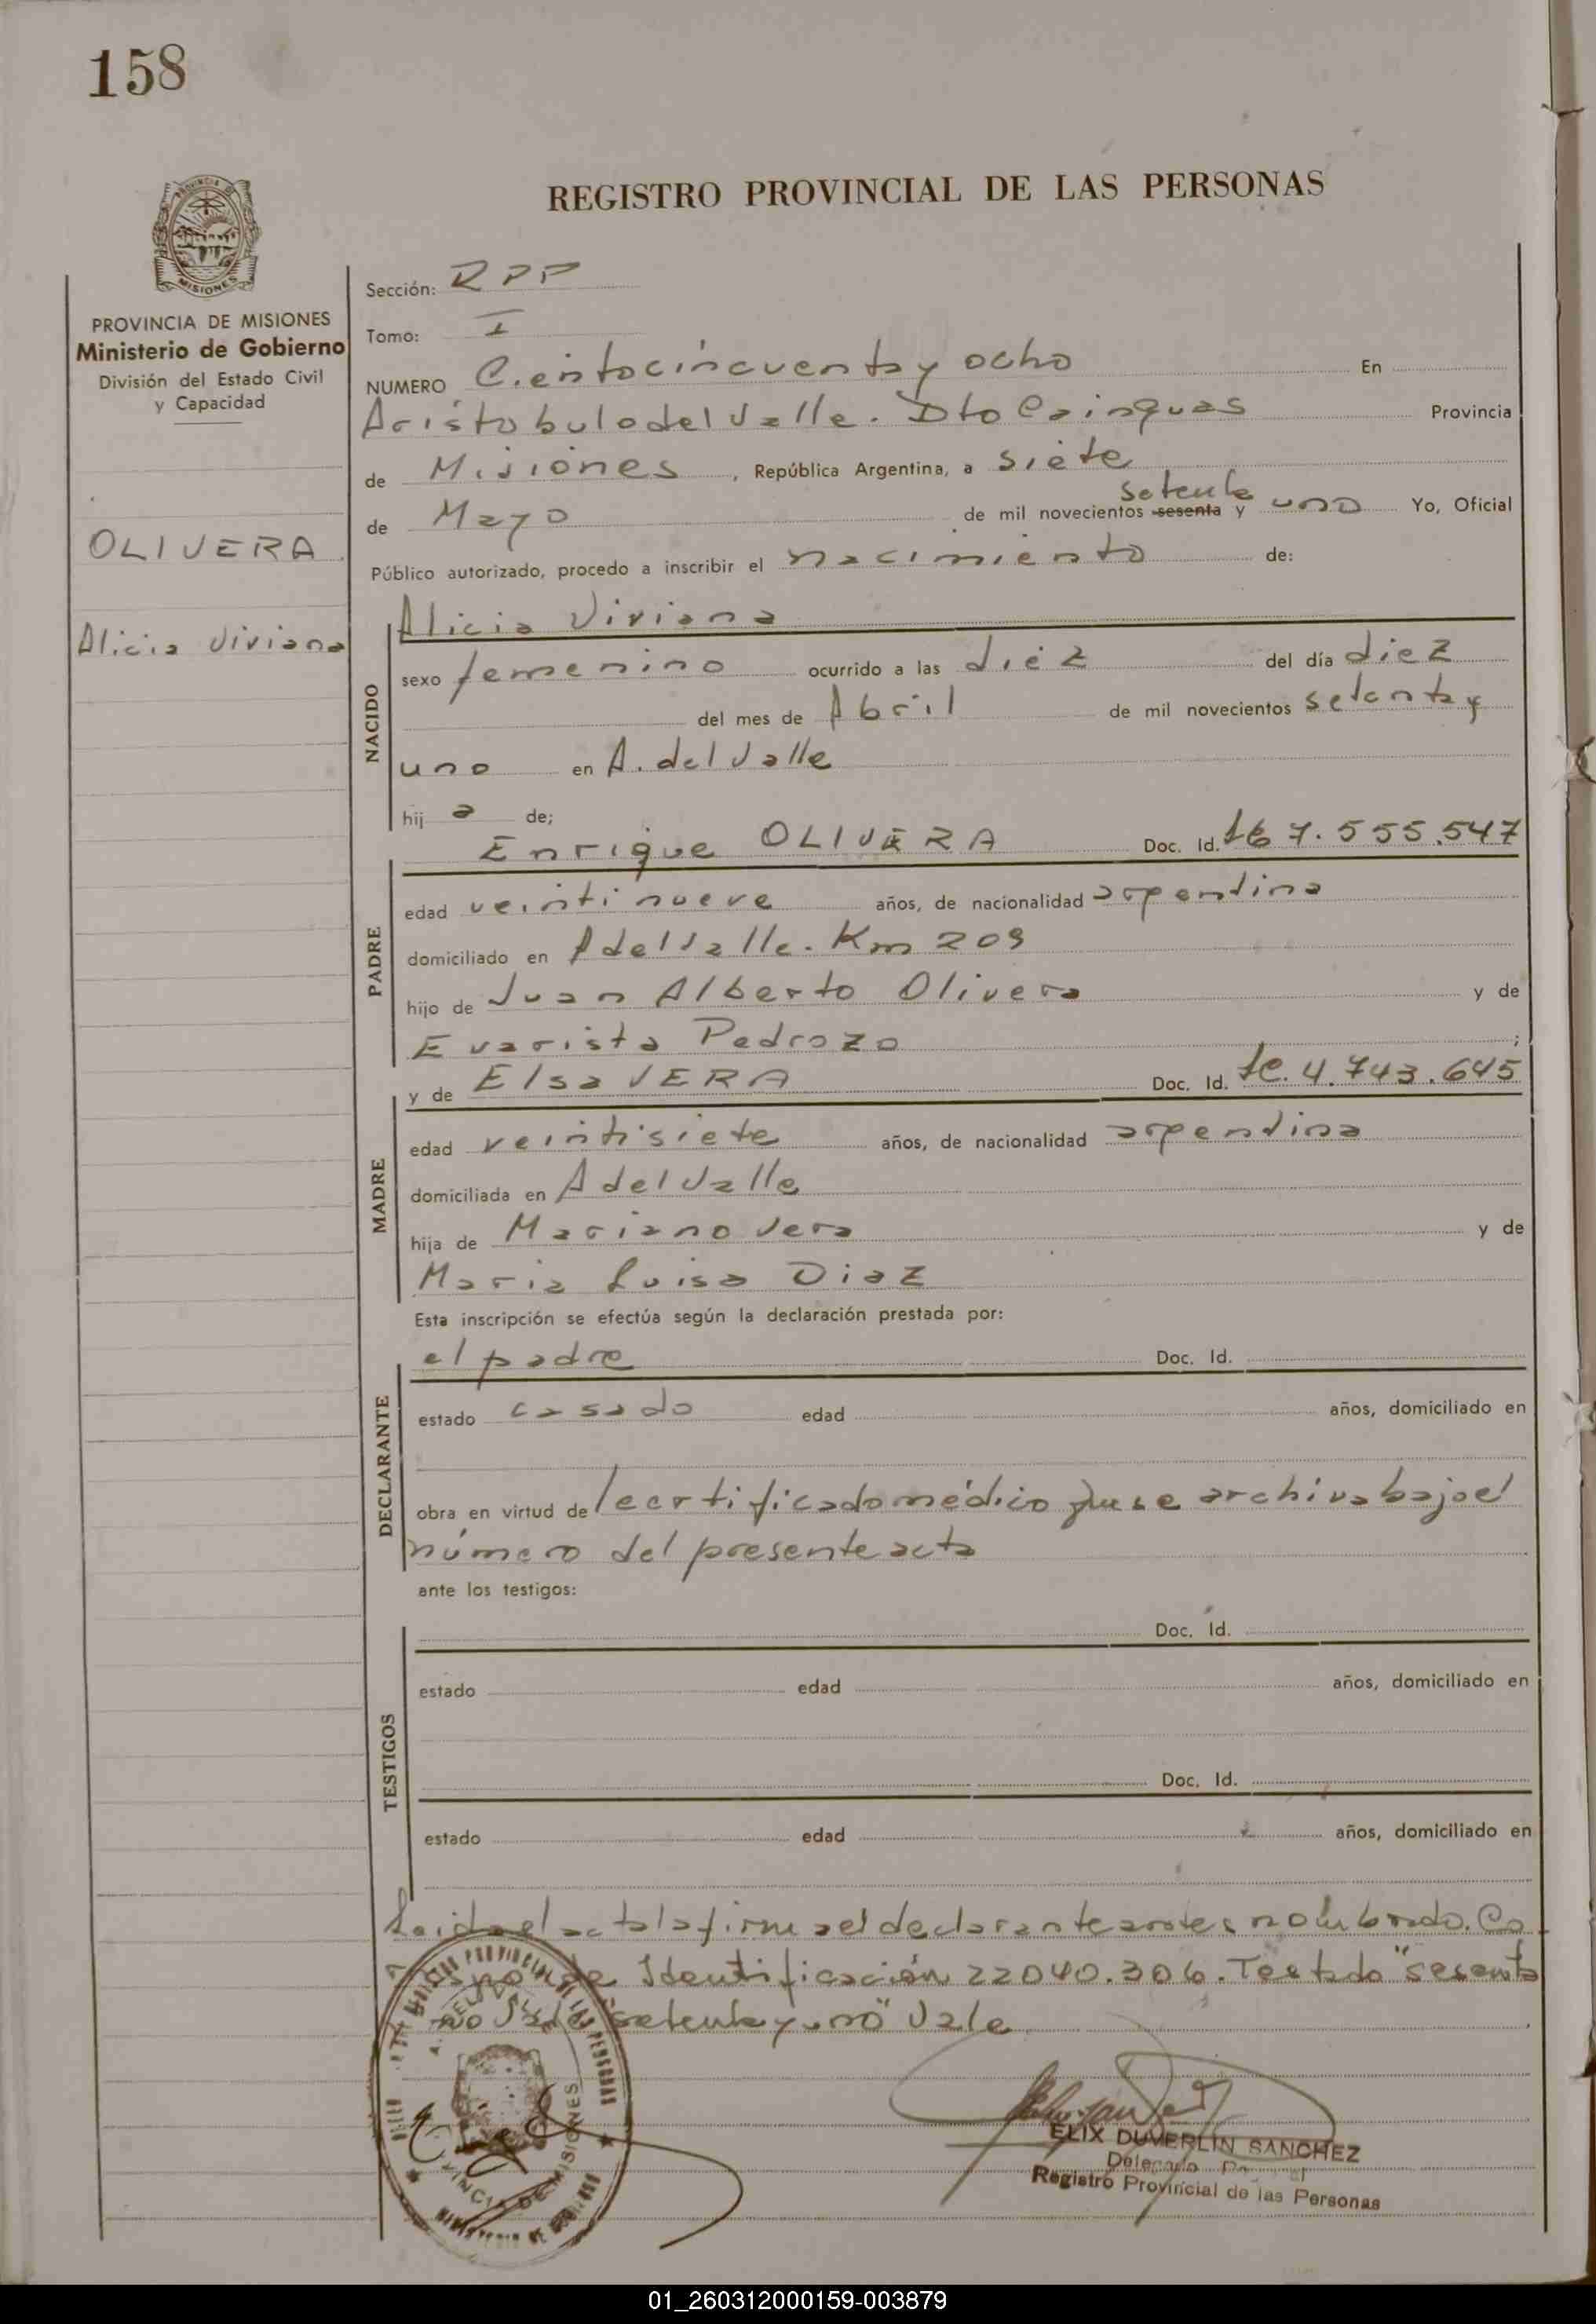 158
REGISTRO PROVINCIAL DE LAS PERSONAS
MISIONES
PROVINCIA DE MISIONES
Ministerio de Gobierno
División del Estado Civil
y Capacidad
OLIVERA
Alicia Viviana
Sección: RPP
Tomo: I
NUMERO Cientocincuenta y ocho En
Aristobulo del Valle. Dto Cainguas Provincia
de Misiones, República Argentina, a siete
setenta
de Mayo de mil novecientos sesenta y uno Yo, Oficial
Público autorizado, procedo a inscribir el nacimiento de:
Alicia Viviana
NACIDO
sexo femenino ocurrido a las diez del día diez
del mes de Abril de mil novecientos setenta y
uno en A. del Valle
hij a de;
Enrique OLIVERA Doc. Id. 7.555.547
PADRE
edad veintinueve años, de nacionalidad argentina
domiciliado en A del Valle. Km 209
hijo de Juan Alberto Olivera y de
Evarista Pedrozo ;
y de Elsa VERA Doc. Id. 4.743.645
MADRE
edad veintisiete años, de nacionalidad argentina
domiciliada en A del Valle
hija de Mariano Vera y de
Maria Luisa Diaz
Esta inscripción se efectúa según la declaración prestada por:
el padre Doc. Id.
DECLARANTE
estado casado edad años, domiciliado en
obra en virtud del certificado médico que se archiva bajo el
número del presente acta
ante los testigos:
TESTIGOS
Doc. Id.
estado edad años, domiciliado en
Doc. Id.
estado edad años, domiciliado en
Leida el acta la firma el declarante antes nombrado. Co
de Identificación 22040.306. Testado "sesenta
no Vale "setenta y uno" Vale
REGISTRO PROVINCIAL DE LAS PERSONAS
A. DEL VALLE
PROVINCIA DE MISIONES
MINISTERIO DE GOBIERNO
ELIX DUVERLIN SANCHEZ
Delegado
Registro Provincial de las Personas
01_260312000159-003879